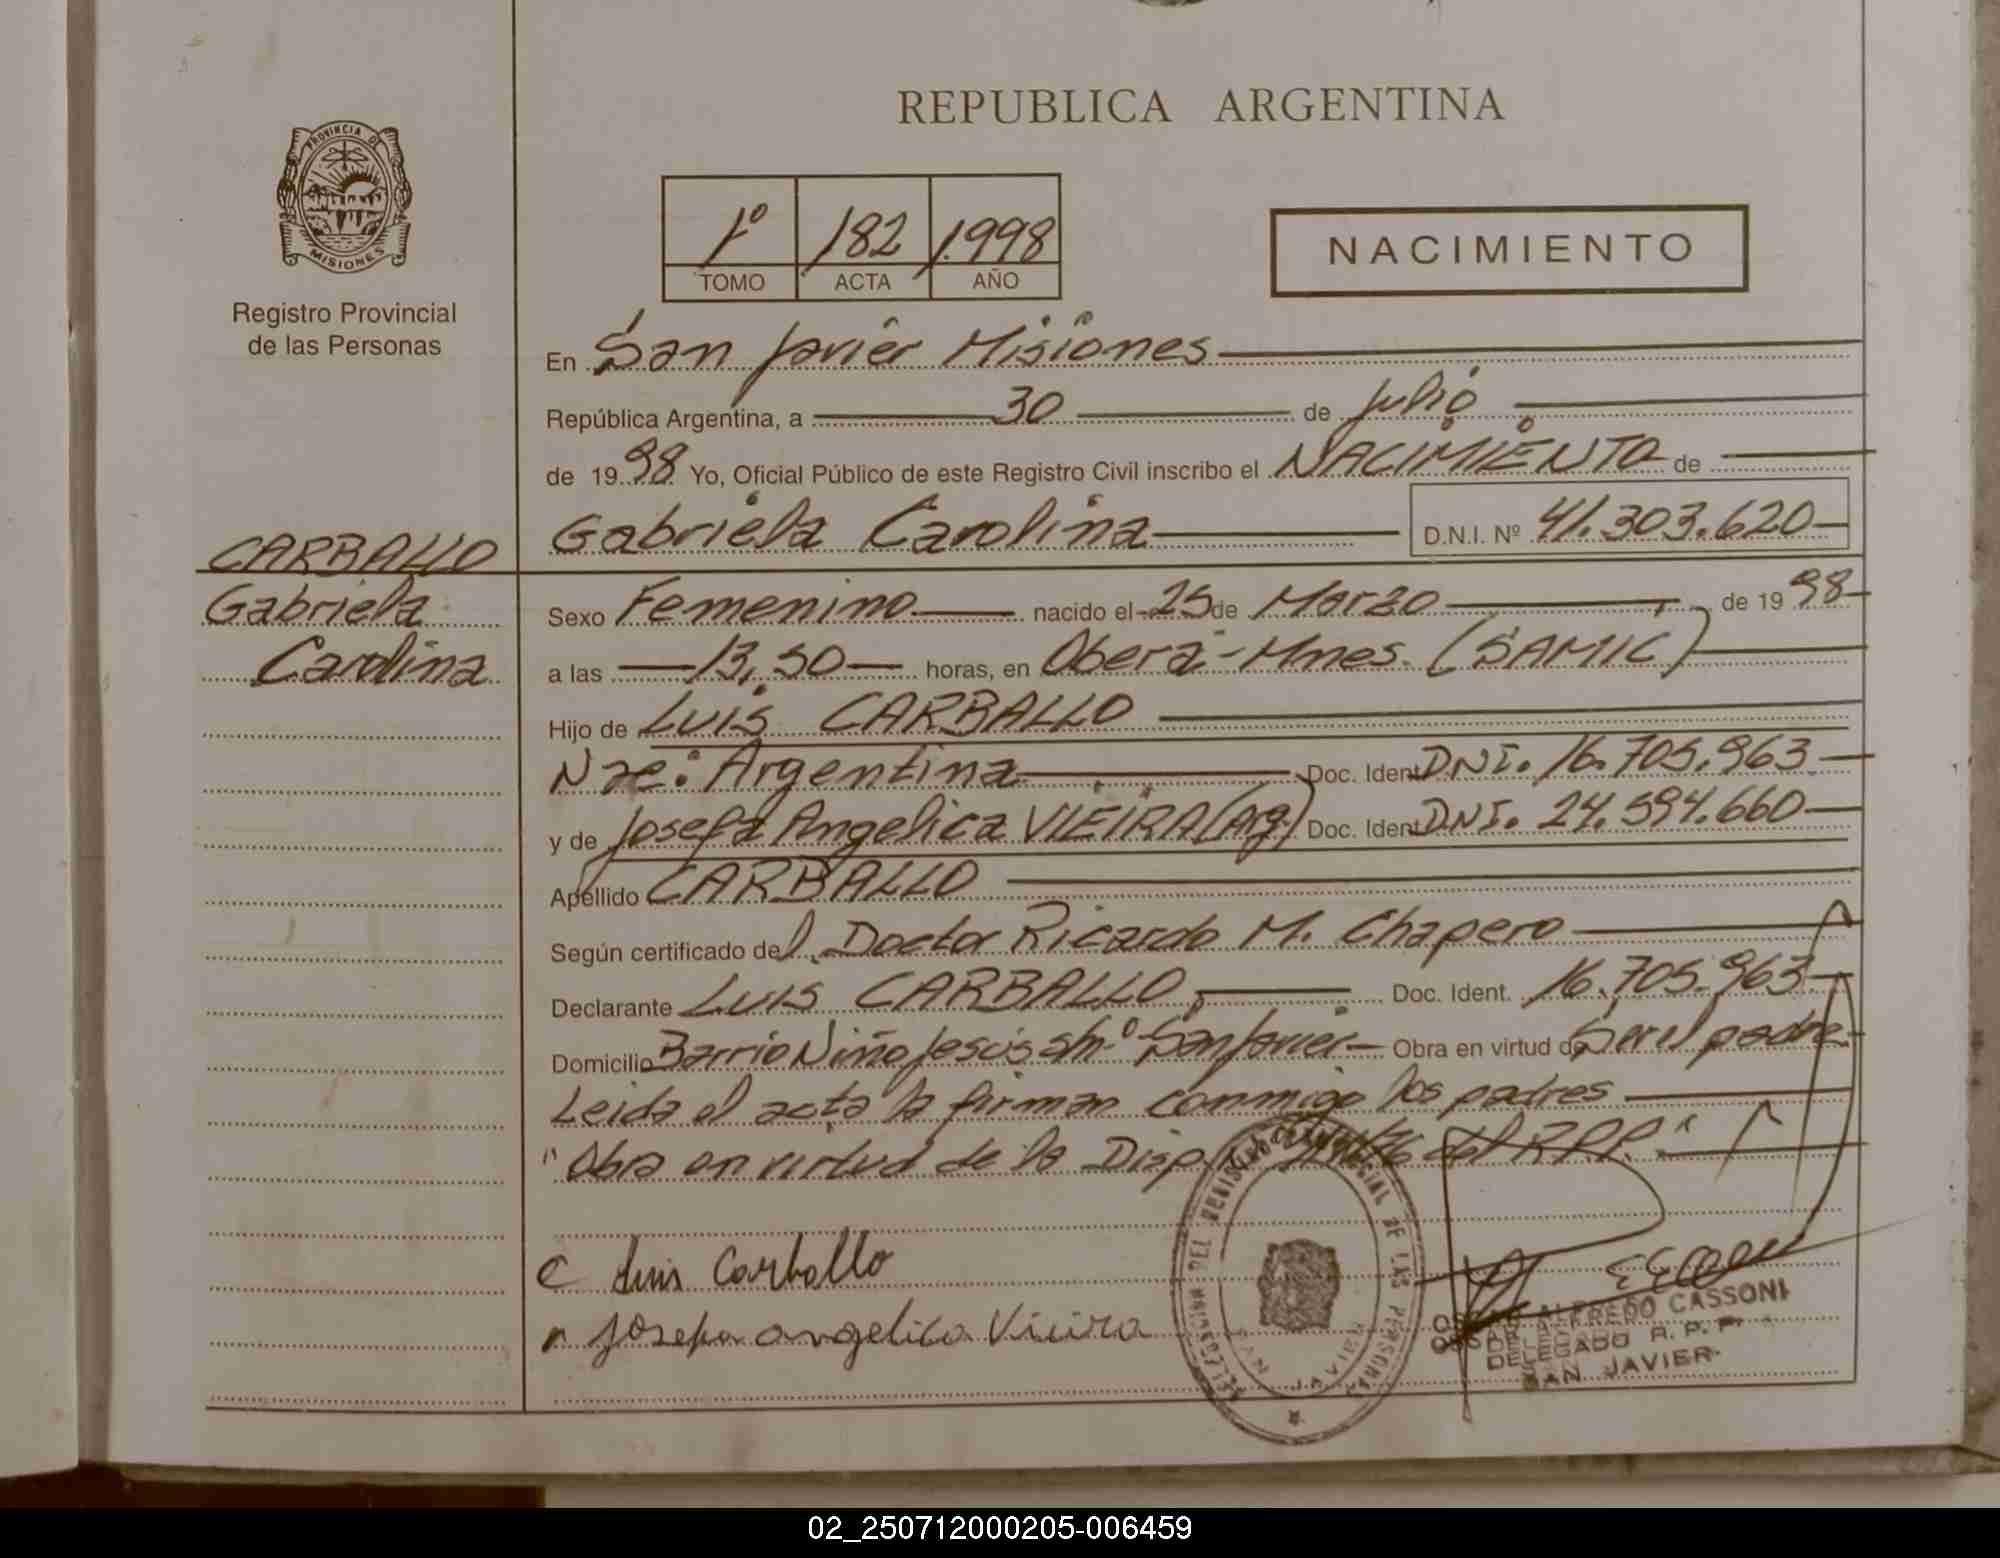 REPUBLICA ARGENTINA
PROVINCIA DE
MISIONES
Registro Provincial
de las Personas
1º 182 1.998
TOMO ACTA AÑO
NACIMIENTO
En San Javier Misiones
República Argentina, a 30 de Julio
de 1998 Yo, Oficial Público de este Registro Civil inscribo el NACIMIENTO de
Gabriela Carolina D.N.I. Nº 41.303.620
CARBALLO
Gabriela
Carolina
Sexo Femenino nacido el 25 de Marzo de 1998
a las 13,50 horas, en Oberá-Mnes. (SAMIC)
Hijo de Luis CARBALLO
Nac: Argentina Doc. Ident DNI. 16.705.963
y de Josefa Angelica VIEIRA (Arg) Doc. Ident DNI. 24.594.660
Apellido CARBALLO
Según certificado del Doctor Ricardo M. Chapero
Declarante Luis CARBALLO Doc. Ident. 16.705.963
Domicilio Barrio Niño Jesús s/nº San Javier Obra en virtud de Ser el padre
Leida el acta la firman conmigo los padres
"Obra en virtud de la Disp. del R.P.P."
Luis Carballo
Josefa angelica Vieira
DEL REGISTRO PROVINCIAL DE LAS PERSONAS
SAN JAVIER
OSCAR ALFREDO CASSONI
DELEGADO R. P. P.
SAN JAVIER
02_250712000205-006459